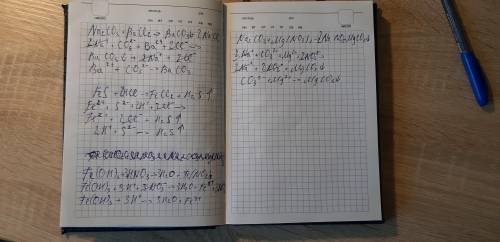 Na2CO3 + BaCl2 → BaCO3↓ + 2NaCl
2Na+ + CO3 2- + Ba2+ + 2Cl- →
BaCO3↓ + 2Na+ + 2Cl-
Ba2+ + CO3 2- → BaCO3
FeS + 2HCl → FeCl2 + H2S↑
Fe2+ + S2- + 2H+ + 2Cl- →
Fe2+ + 2Cl- + H2S↑
2H+ + S2- → H2S↑
Fe(OH)3 + 3HNO3 → 3H2O + Fe(NO3)3
Fe(OH)3 + 3H+ + 3NO3- → 3H2O + Fe3+
Fe(OH)3 + 3H+ → 3H2O + Fe3+
Na2CO3 + Mg(NO3)2 → 2NaNO3 + MgCO3↓
2Na+ + CO3 2- + Mg2+ + 2NO3- →
2Na+ + 2NO3- + MgCO3↓
CO3 2- + Mg2+ → MgCO3↓